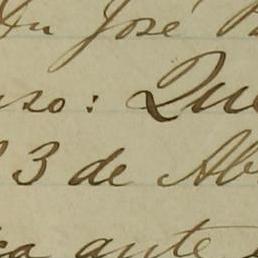 José
uso: Que
3 de Ab
ante